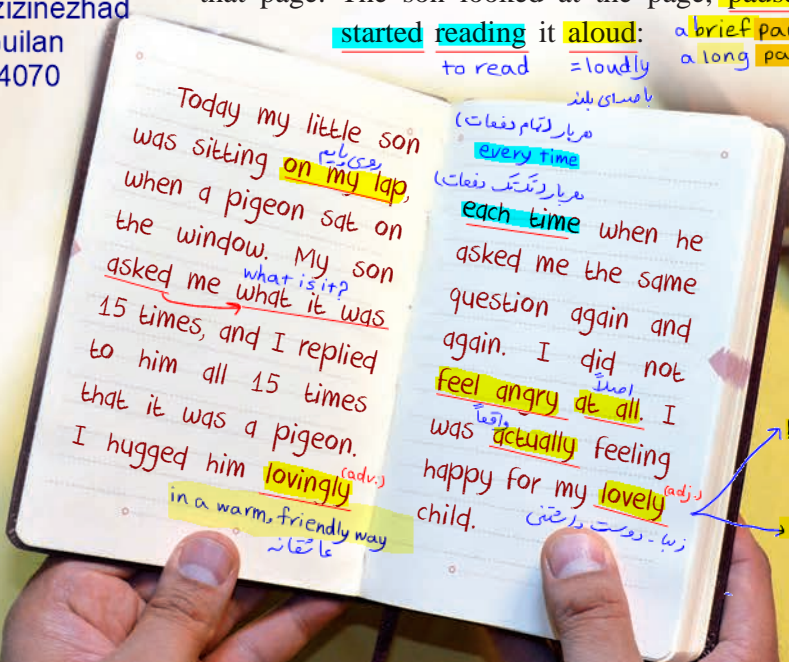 zizinezhad
uilan
4070
that page. The son looked at the page, pause
started reading it aloud:
a brief pau
a long pa
to read =loudly
با صدای بلند
Today my little son
was sitting on my lap,
روی پایم
when a pigeon sat on
the window. My son
what is it?
asked me what it was
15 times, and I replied
to him all 15 times
that it was a pigeon.
I hugged him lovingly
(adv.)
in a warm, friendly way
عاشقانه
هر بار (تمام دفعات)
every time
هر بار (تک تک دفعات)
each time when he
asked me the same
question again and
again. I did not
اصلاً
feel angry at all. I
واقعاً
was actually feeling
happy for my lovely
(adj.)
child.
زیبا - دوست داشتنی